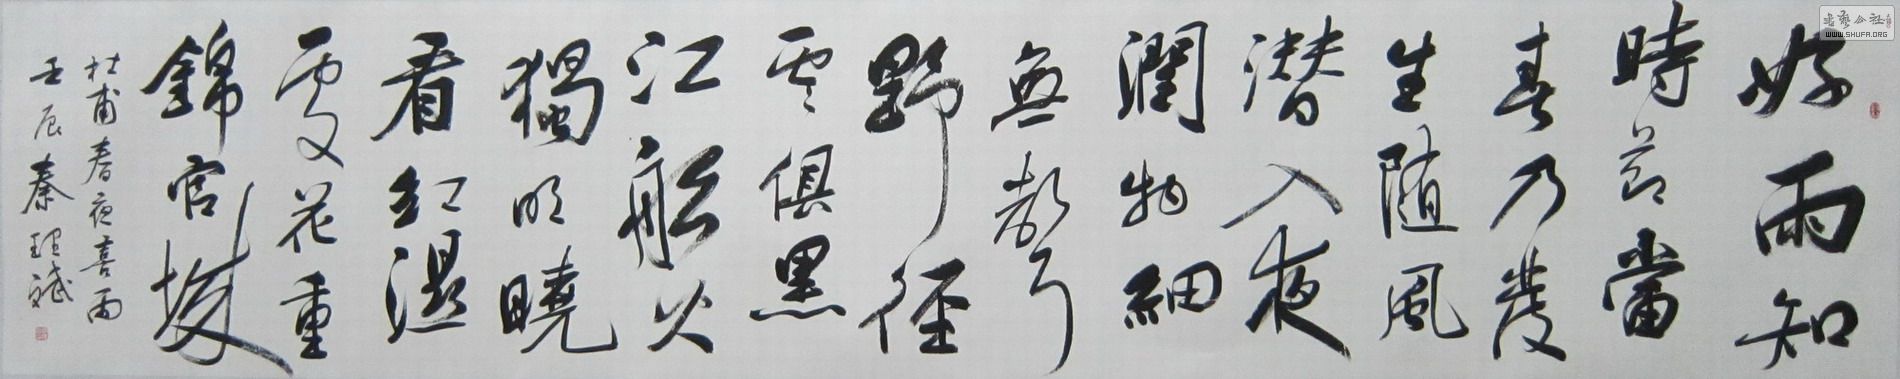 好雨知
時節當
春乃發
生随風
潜入夜
潤物細
無聲
野徑
雲俱黑
江船火
獨明曉
看紅濕
處花重
錦官城
杜甫春夜喜雨
壬辰秦理斌
書藝公社
WWW.SHUFA.ORG